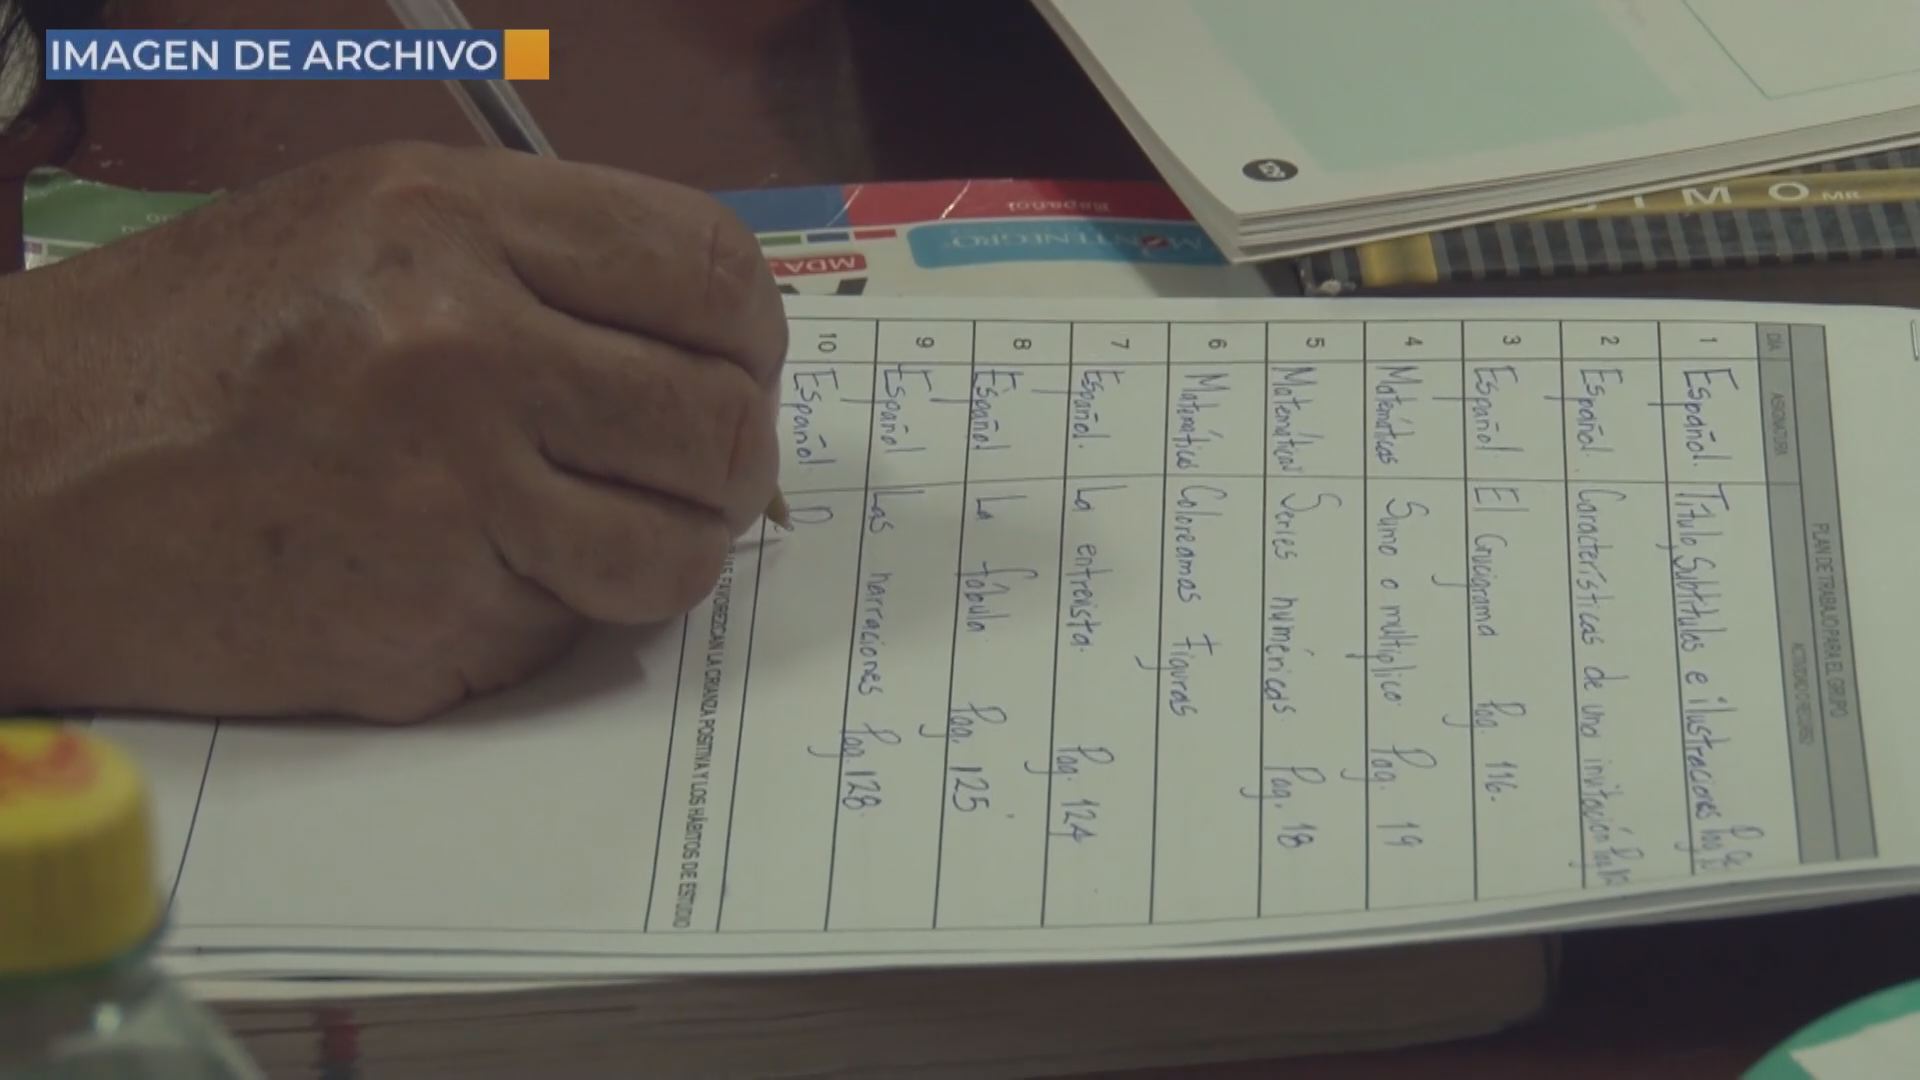 IMAGEN DE ARCHIVO
MR
Español
MONTENEGRO
MDA
PLAN DE TRABAJO PARA EL GRUPO
DÍA ASIGNATURA ACTIVIDAD O RECURSO
1 Español. Título, Subtítulos e ilustraciones
2 Español. Características de una invitación
3 Español El Crucigrama Pag. 116.
4 Matemáticas Sumo o multiplico. Pag. 19
5 Matemáticas Series numéricas. Pag. 18
6 Matemáticas Coloreamos Figuras
7 Español. La entrevista. Pag. 124
8 Español La fábula. Pag. 125
9 Español Las narraciones Pag. 128.
10 Español
FAVOREZCAN LA CRIANZA POSITIVA Y LOS HÁBITOS DE ESTUDIO